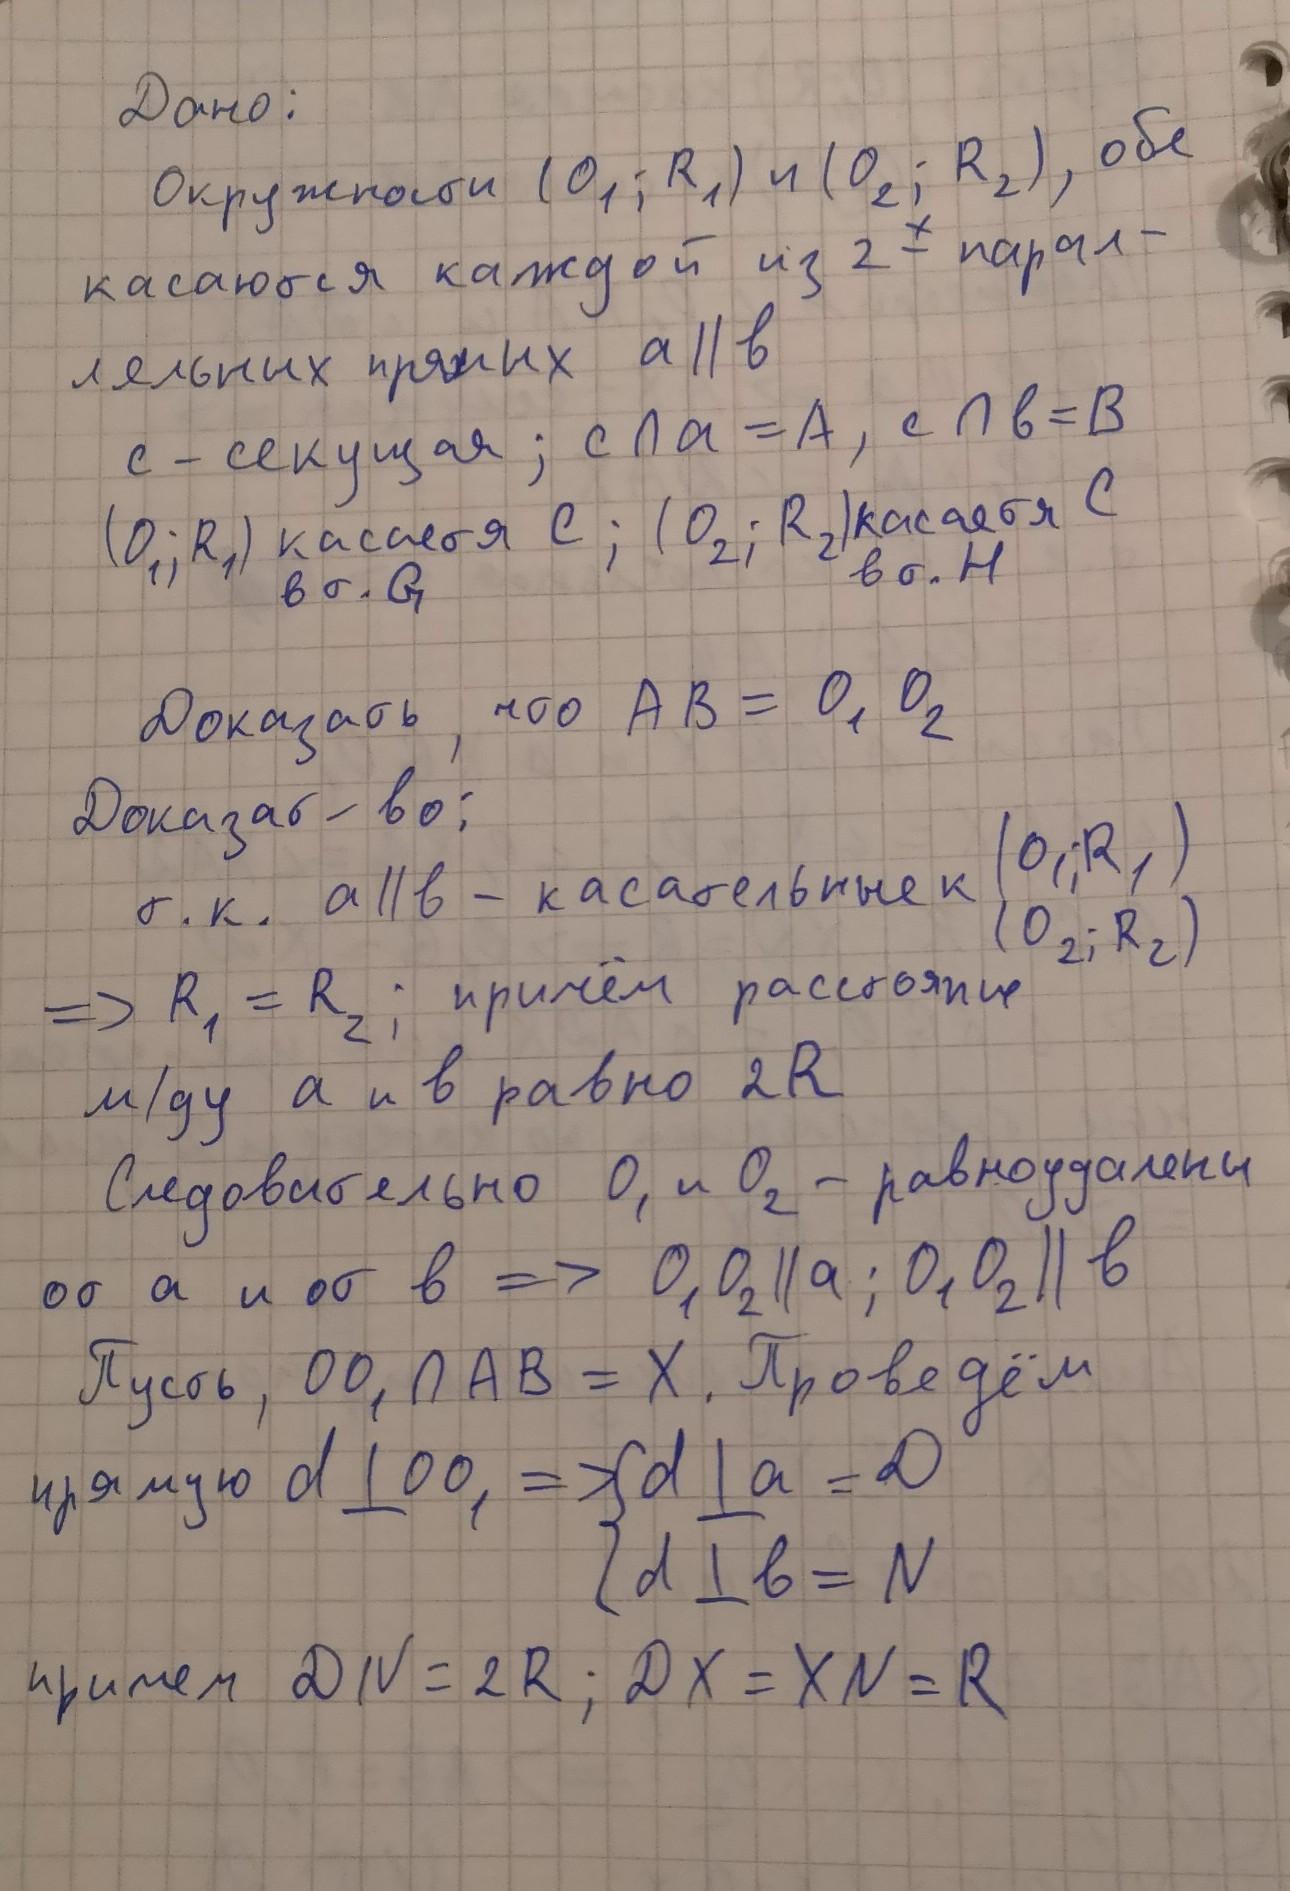 Дано:
Окружности (O₁; R₁) и (O₂; R₂), обе
касаются каждой из 2-х парал-
лельных прямых a||в
c - секущая; c∩a = A, c∩в = B
(O₁; R₁) касаетя C; (O₂; R₂) касаетя C
в т. G в т. H
Доказать, что AB = O₁O₂
Доказат-во:
т.к. a||в - касательные к (O₁; R₁)
(O₂; R₂)
=> R₁ = R₂; причём расстояние
м/ду a и в равно 2R
Следовательно O₁ и O₂ - равноудалены
от a и от в => O₁O₂||a; O₁O₂||в
Пусть, OO₁∩AB = X. Проведём
прямую d⊥OO₁ => {d⊥a = D
{d⊥в = N
причем DN = 2R; DX = XN = R